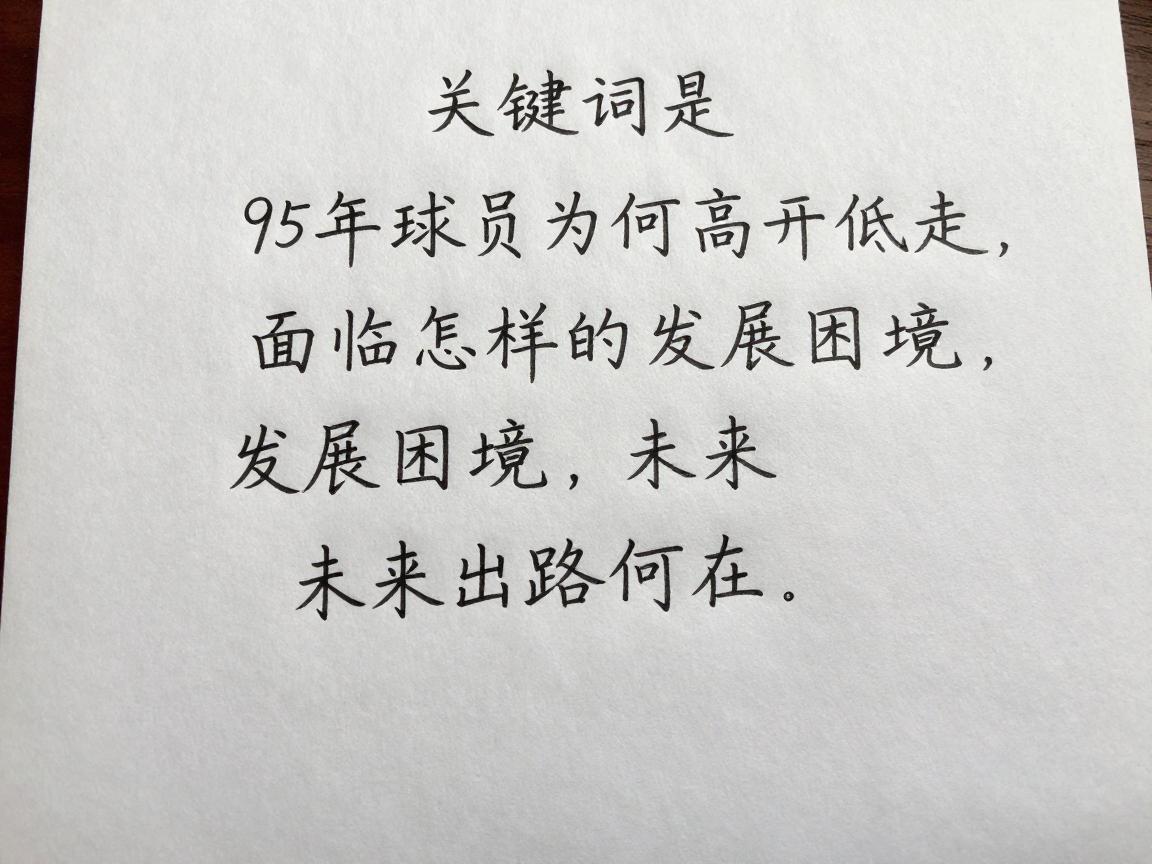 关键词是
95年球员为何高开低走,
面临怎样的发展困境,
发展困境,未来
未来出路何在。